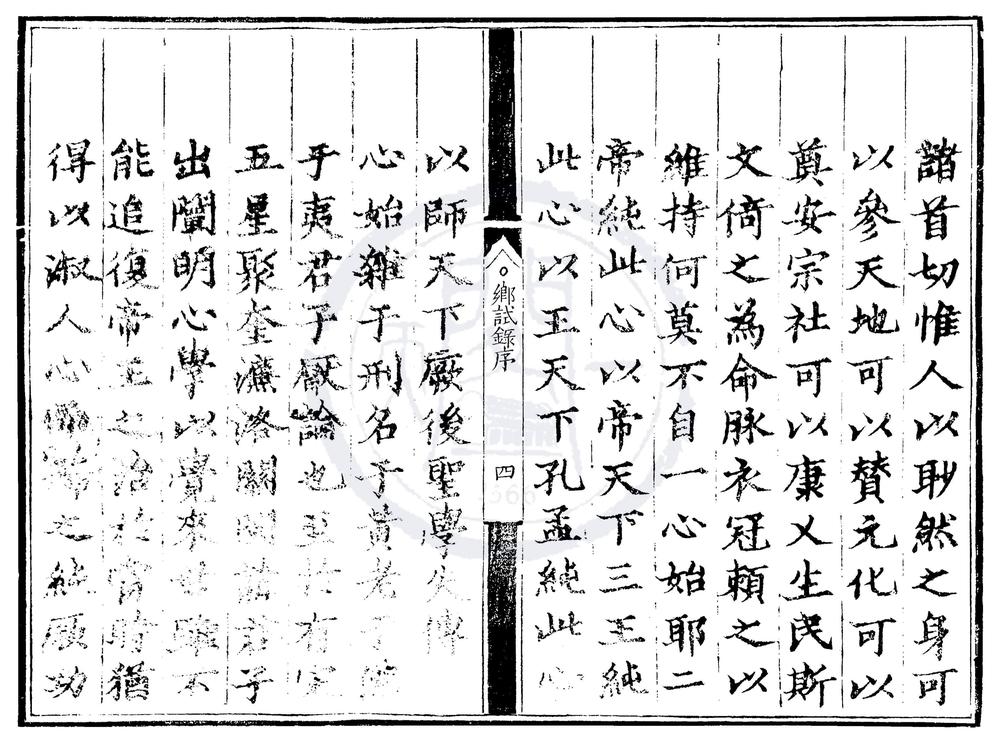 諸首切惟人以耿然之身可
以參天地可以賛元化可以
奠安宗社可以康乂生民斯
文倚之為命脉衣冠頼之以
維持何莫不自一心始耶二
帝純此心以帝天下三王純
此心以王天下孔孟純此心
鄉試錄序
四
以師天下厥後聖學失傳
心始雜于刑名于黃老于
乎夷君子厭論也至於有宋
五星聚奎濂洛關閩諸君子
出闡明心學以覺來世雖不
能追復帝王之治於當時猶
得以淑人心之統厥功